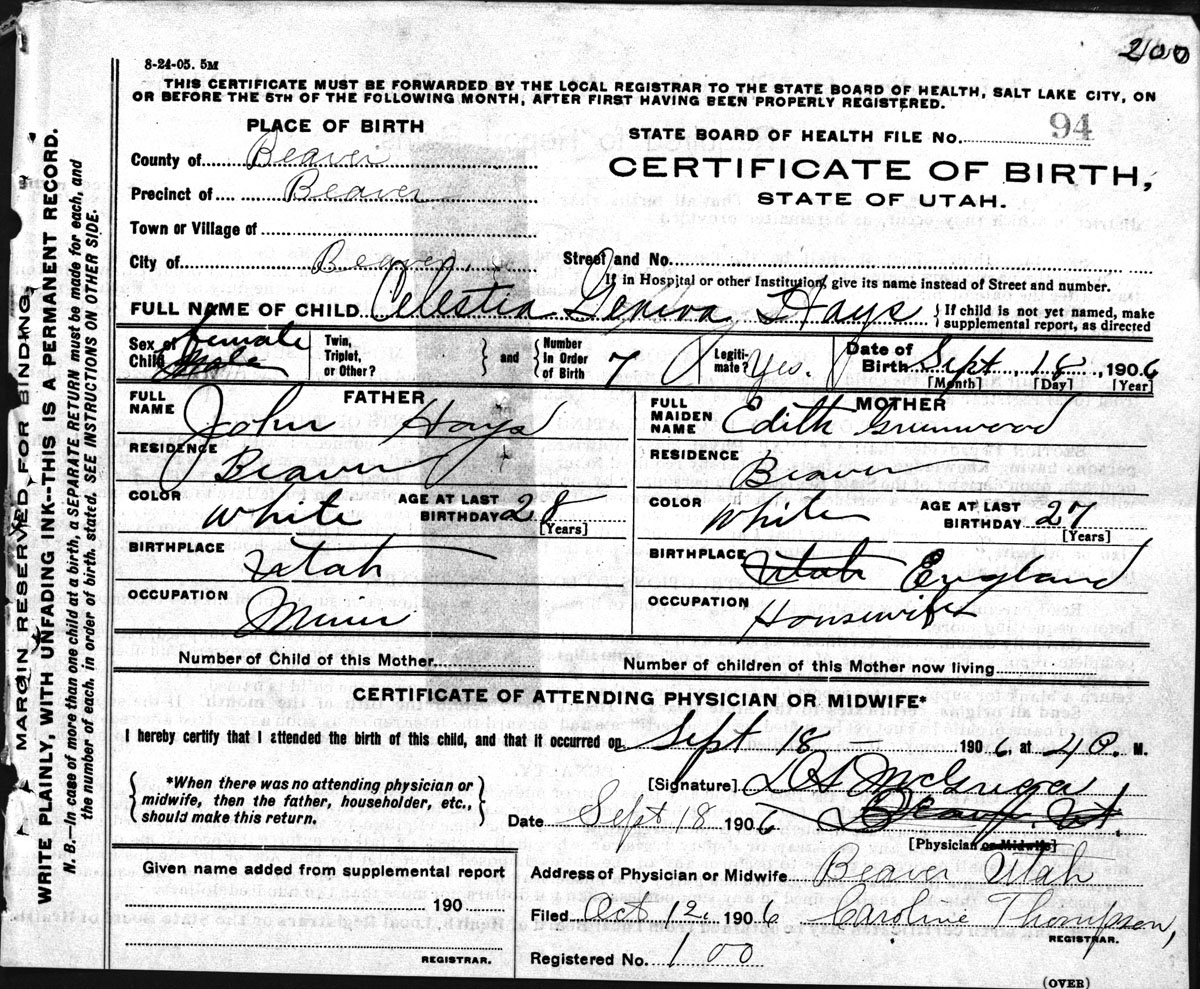 200
8-24-05. 5M
THIS CERTIFICATE MUST BE FORWARDED BY THE LOCAL REGISTRAR TO THE STATE BOARD OF HEALTH, SALT LAKE CITY, ON
OR BEFORE THE 5TH OF THE FOLLOWING MONTH, AFTER FIRST HAVING BEEN PROPERLY REGISTERED.
MARGIN RESERVED FOR BINDING.
WRITE PLAINLY, WITH UNFADING INK--THIS IS A PERMANENT RECORD.
N. B.—In case of more than one child at a birth, a SEPARATE RETURN must be made for each, and
the number of each, in order of birth, stated. SEE INSTRUCTIONS ON OTHER SIDE.
PLACE OF BIRTH
STATE BOARD OF HEALTH FILE No. 94
County of Beaver
CERTIFICATE OF BIRTH,
Precinct of Beaver
STATE OF UTAH.
Town or Village of
City of Beaver
Street and No.
If in Hospital or other Institution, give its name instead of Street and number.
FULL NAME OF CHILD Celestia Geniva Hays } If child is not yet named, make supplemental report, as directed
Sex of Child female Male Twin, Triplet, or Other? } and { Number In Order of Birth 7 Legitimate? Yes. Date of Birth Sept 18, 1906
[Month] [Day] [Year]
FATHER
MOTHER
FULL NAME John Hays
FULL MAIDEN NAME Edith Greenwood
RESIDENCE Beaver
RESIDENCE Beaver
COLOR White AGE AT LAST BIRTHDAY 28 [Years]
COLOR White AGE AT LAST BIRTHDAY 27 [Years]
BIRTHPLACE Utah
BIRTHPLACE Utah England
OCCUPATION Miner
OCCUPATION Housewife
Number of Child of this Mother
Number of children of this Mother now living
CERTIFICATE OF ATTENDING PHYSICIAN OR MIDWIFE*
I hereby certify that I attended the birth of this child, and that it occurred on Sept 18 1906, at 4 M.
*When there was no attending physician or
midwife, then the father, householder, etc.,
should make this return.
[Signature] McGregor
Date Sept 18 1906 Beaver, Ut.
[Physician or Midwife]
Given name added from supplemental report
190
REGISTRAR.
Address of Physician or Midwife Beaver Utah
Filed Oct 12, 1906 Caroline Thompson,
REGISTRAR.
Registered No. 100
(OVER)